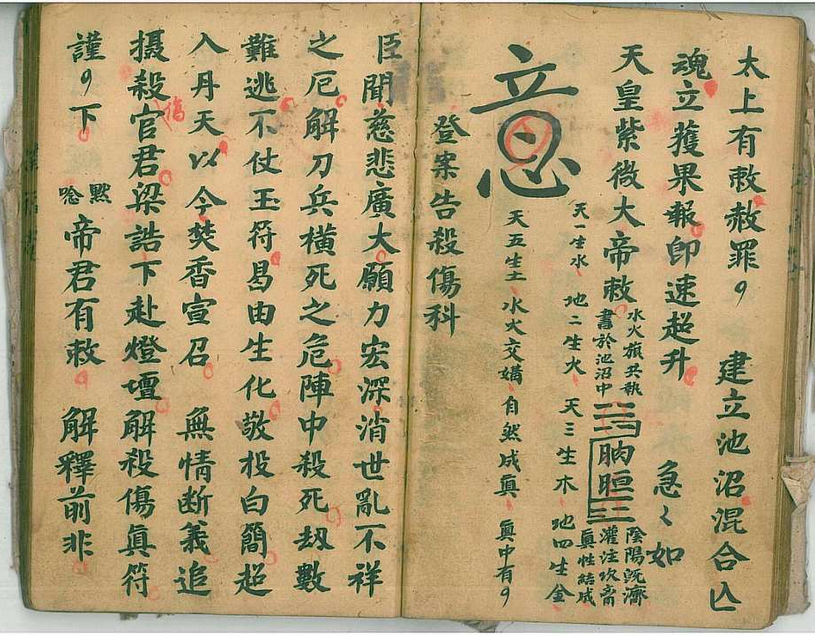 太上有敕赦罪 建立池沼混合
魂立獲果報即速超升 急々如
天皇紫微大帝敕
水火
書於池沼中
陰陽既濟
灌注
真性結成
天一生水 地二生火 天三生木 地四生金
天五生土 水火交媾 自然成真 真中有
意
登案告殺傷科
臣聞慈悲廣大願力宏深消世亂不祥
之厄解刀兵橫死之危陣中殺死劫數
難逃不仗玉符曷由生化敬投白簡超
入丹天以今焚香宣召 無情断義追
摄殺官君梁誥下赴燈壇解殺傷真符
謹 下 默
念
帝君有敕 解釋前非